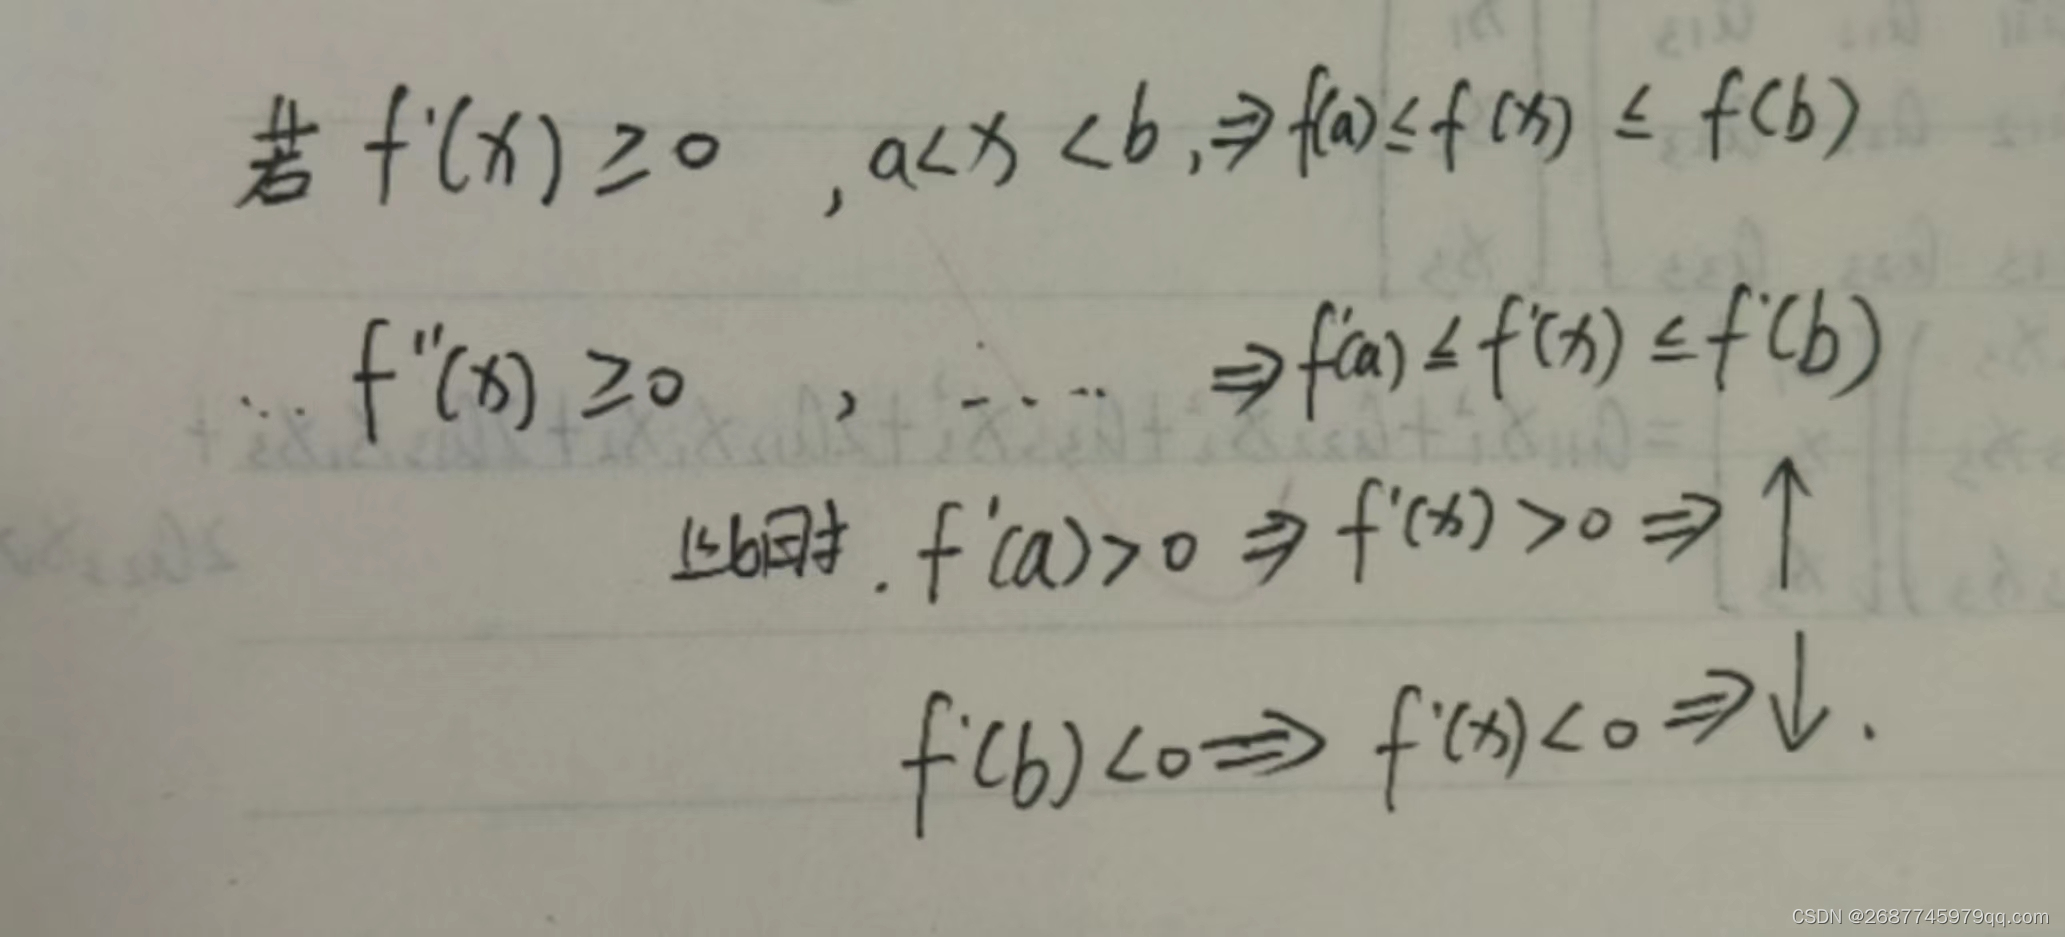 若 f'(x) ≥ 0 , a < x < b , ⇒ f(a) ≤ f(x) ≤ f(b)
... f''(x) ≥ 0 , ..... ⇒ f'(a) ≤ f'(x) ≤ f'(b)
此时. f'(a) > 0 ⇒ f'(x) > 0 ⇒ ↑
f'(b) < 0 ⇒ f'(x) < 0 ⇒ ↓.
CSDN @2687745979qq.com